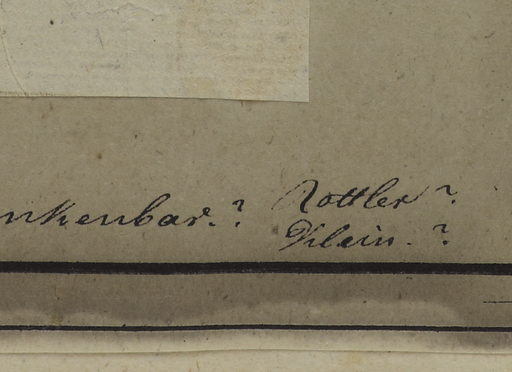 nkenbar.? Rottler?
Klein.?